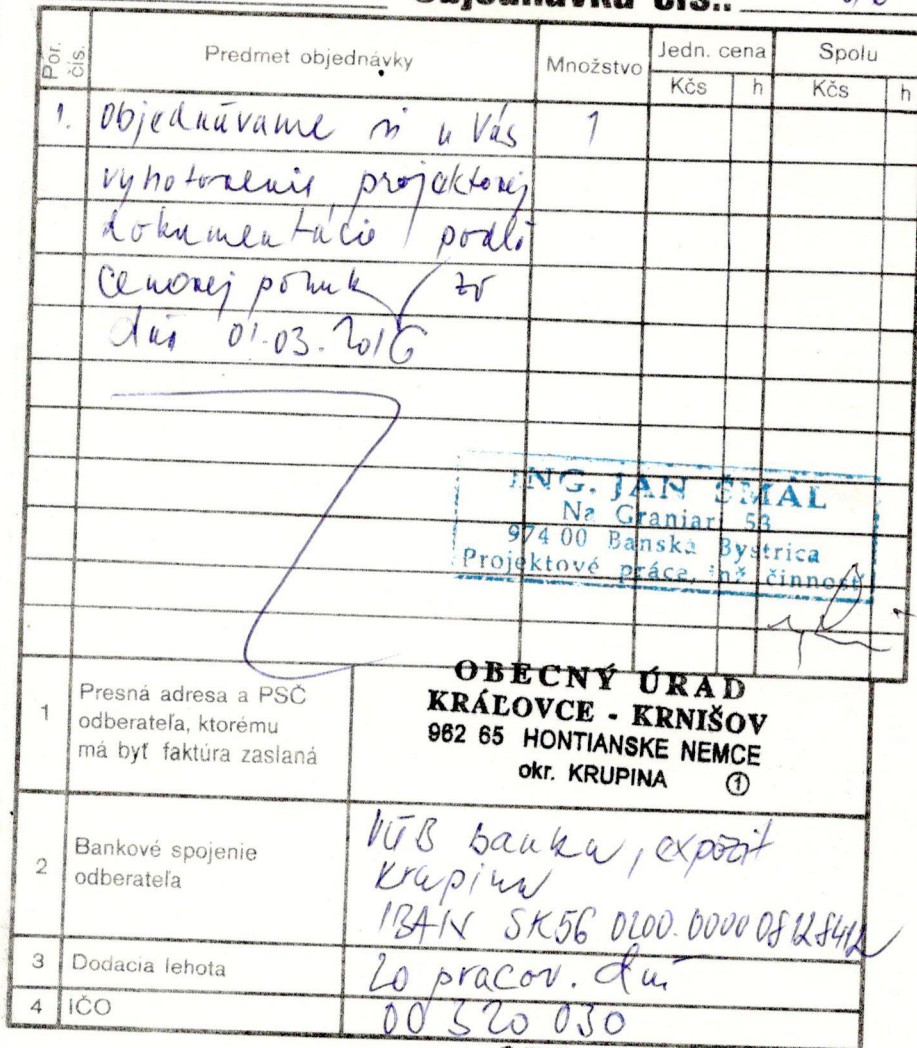 Objednávka čís.:
Por. čís. Predmet objednávky Množstvo Jedn. cena Spolu
Kčs h Kčs h
1. Objednávame si u Vás 1
vyhotovenie projektovej
dokumentácie podľa
cenovej ponuky zo
dňa 01.03.2016
ING. JÁN ŠMÁL
Na Graniari 53
974 00 Banská Bystrica
Projektové práce, inž. činnosť
1 Presná adresa a PSČ
odberateľa, ktorému
má byť faktúra zaslaná
OBECNÝ ÚRAD
KRÁĽOVCE - KRNIŠOV
962 65 HONTIANSKE NEMCE
okr. KRUPINA 1
2 Bankové spojenie
odberateľa
VÚB banka, expozit
Krupina
IBAN SK56 0200 0000
3 Dodacia lehota 20 pracov. dní
4 IČO 00 320 030